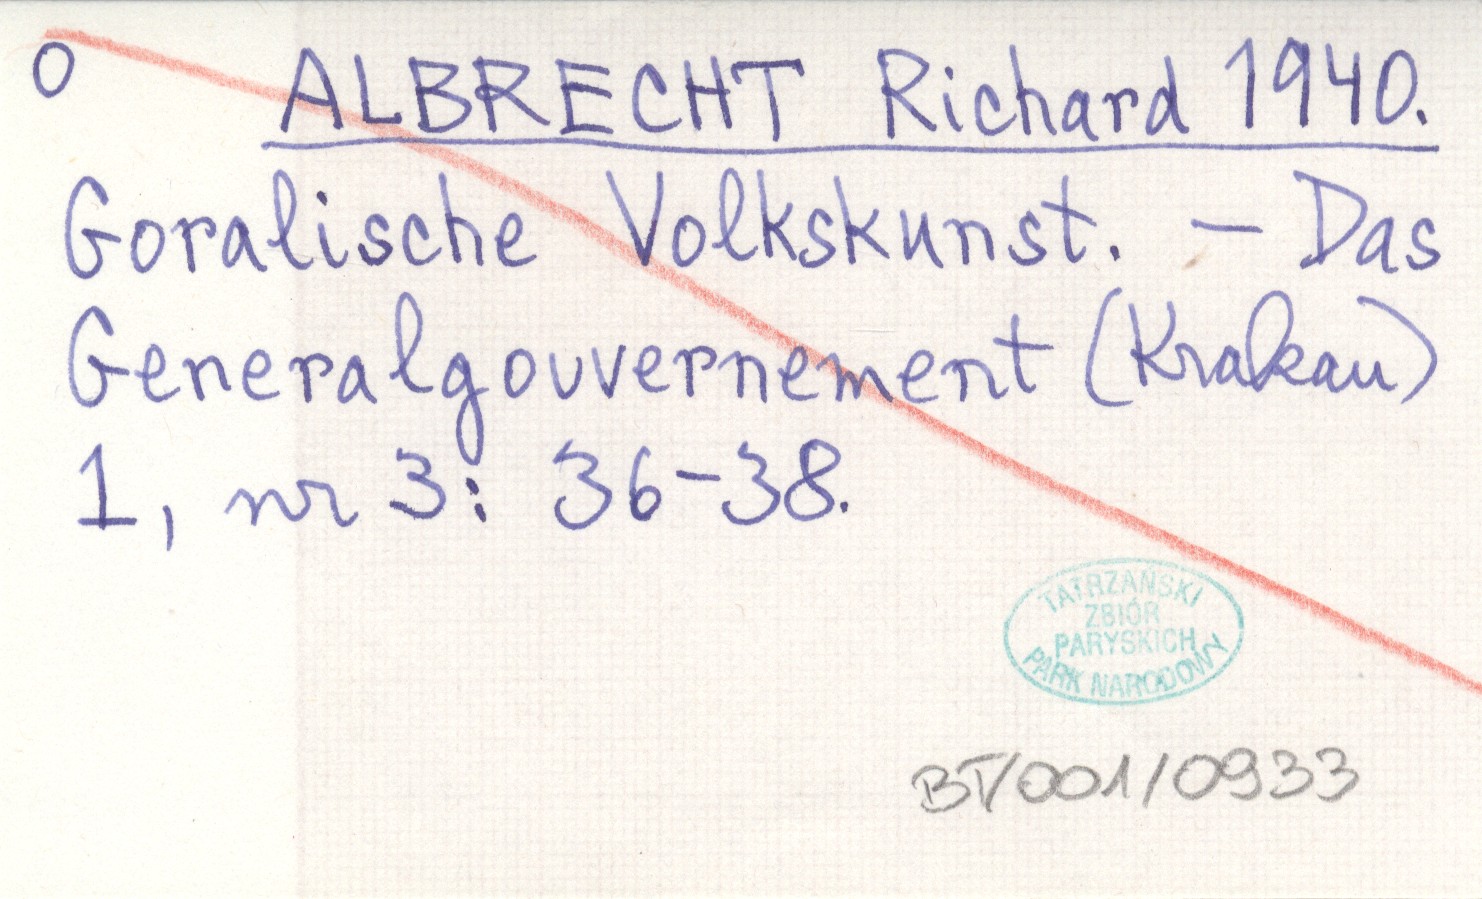 O
ALBRECHT Richard 1940.
Goralische Volkskunst. – Das
Generalgouvernement (Krakau)
1, nr 3: 36-38.
TATRZAŃSKI
ZBIÓR
PARYSKICH
PARK NARODOWY
BT/001/0933